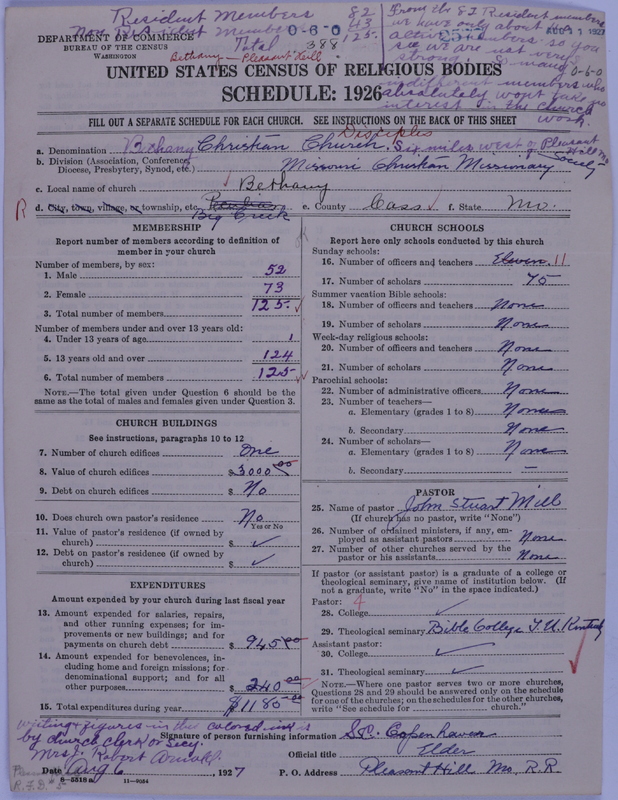 Resident Members 82
Non Resident Members 43
Total 125
0-6-0
388
From the 82 Resident members
we have only about
active members so you
see we are not very
strong. So many
indifferent members who
absolutely wont take
interest in the church
work.
AUG 11 1927
0-6-0
DEPARTMENT OF COMMERCE
BUREAU OF THE CENSUS
WASHINGTON
Bethany - Pleasant Hill
UNITED STATES CENSUS OF RELIGIOUS BODIES
SCHEDULE: 1926
FILL OUT A SEPARATE SCHEDULE FOR EACH CHURCH. SEE INSTRUCTIONS ON THE BACK OF THIS SHEET
Disciples
a. Denomination Bethany Christian Church. Six miles west of Pleasant Hill Mo
b. Division (Association, Conference, Diocese, Presbytery, Synod, etc.) Missouri Christian Missionary Society
c. Local name of church Bethany
R d. City, town, village, or township, etc. Big Creek e. County Cass f. State Mo.
MEMBERSHIP
Report number of members according to definition of
member in your church
Number of members, by sex:
1. Male 52
2. Female 73
3. Total number of members 125
Number of members under and over 13 years old:
4. Under 13 years of age 1
5. 13 years old and over 124
6. Total number of members 125
NOTE.—The total given under Question 6 should be the
same as the total of males and females given under Question 3.
CHURCH BUILDINGS
See instructions, paragraphs 10 to 12
7. Number of church edifices One
8. Value of church edifices $3000.00
9. Debt on church edifices $ No
10. Does church own pastor's residence No
Yes or No
11. Value of pastor's residence (if owned by
church) $ ✓
12. Debt on pastor's residence (if owned by
church) $ ✓
EXPENDITURES
Amount expended by your church during last fiscal year
13. Amount expended for salaries, repairs,
and other running expenses; for im-
provements or new buildings; and for
payments on church debt $945.00
14. Amount expended for benevolences, in-
cluding home and foreign missions; for
denominational support; and for all
other purposes $240.00
15. Total expenditures during year $1180.00
CHURCH SCHOOLS
Report here only schools conducted by this church
Sunday schools:
16. Number of officers and teachers Eleven 11
17. Number of scholars 75
Summer vacation Bible schools:
18. Number of officers and teachers None
19. Number of scholars None
Week-day religious schools:
20. Number of officers and teachers None
21. Number of scholars None
Parochial schools:
22. Number of administrative officers None
23. Number of teachers—
a. Elementary (grades 1 to 8) None
b. Secondary None
24. Number of scholars—
a. Elementary (grades 1 to 8) None
b. Secondary —
PASTOR
25. Name of pastor John Stuart Mill
(If church has no pastor, write "None")
26. Number of ordained ministers, if any, em-
ployed as assistant pastors None
27. Number of other churches served by the
pastor or his assistants None
If pastor (or assistant pastor) is a graduate of a college or
theological seminary, give name of institution below. (If
not a graduate, write "No" in the space indicated.)
Pastor: 4
28. College ✓
29. Theological seminary Bible College T.U. Kentucky
Assistant pastor:
30. College ✓
31. Theological seminary ✓
NOTE.—Where one pastor serves two or more churches,
Questions 28 and 29 should be answered only on the schedule
for one of the churches; on the schedules for the other churches,
write "See schedule for church."
writing & figures in the colored ink is
by church clerk or secy.
Mrs. J. Robert
R.F.D. # 5
Signature of person furnishing information S.C. Copenhaver
Official title Elder
Date Aug 6, 1927 P. O. Address Pleasant Hill Mo. R.R.
8-5518a 11-9034